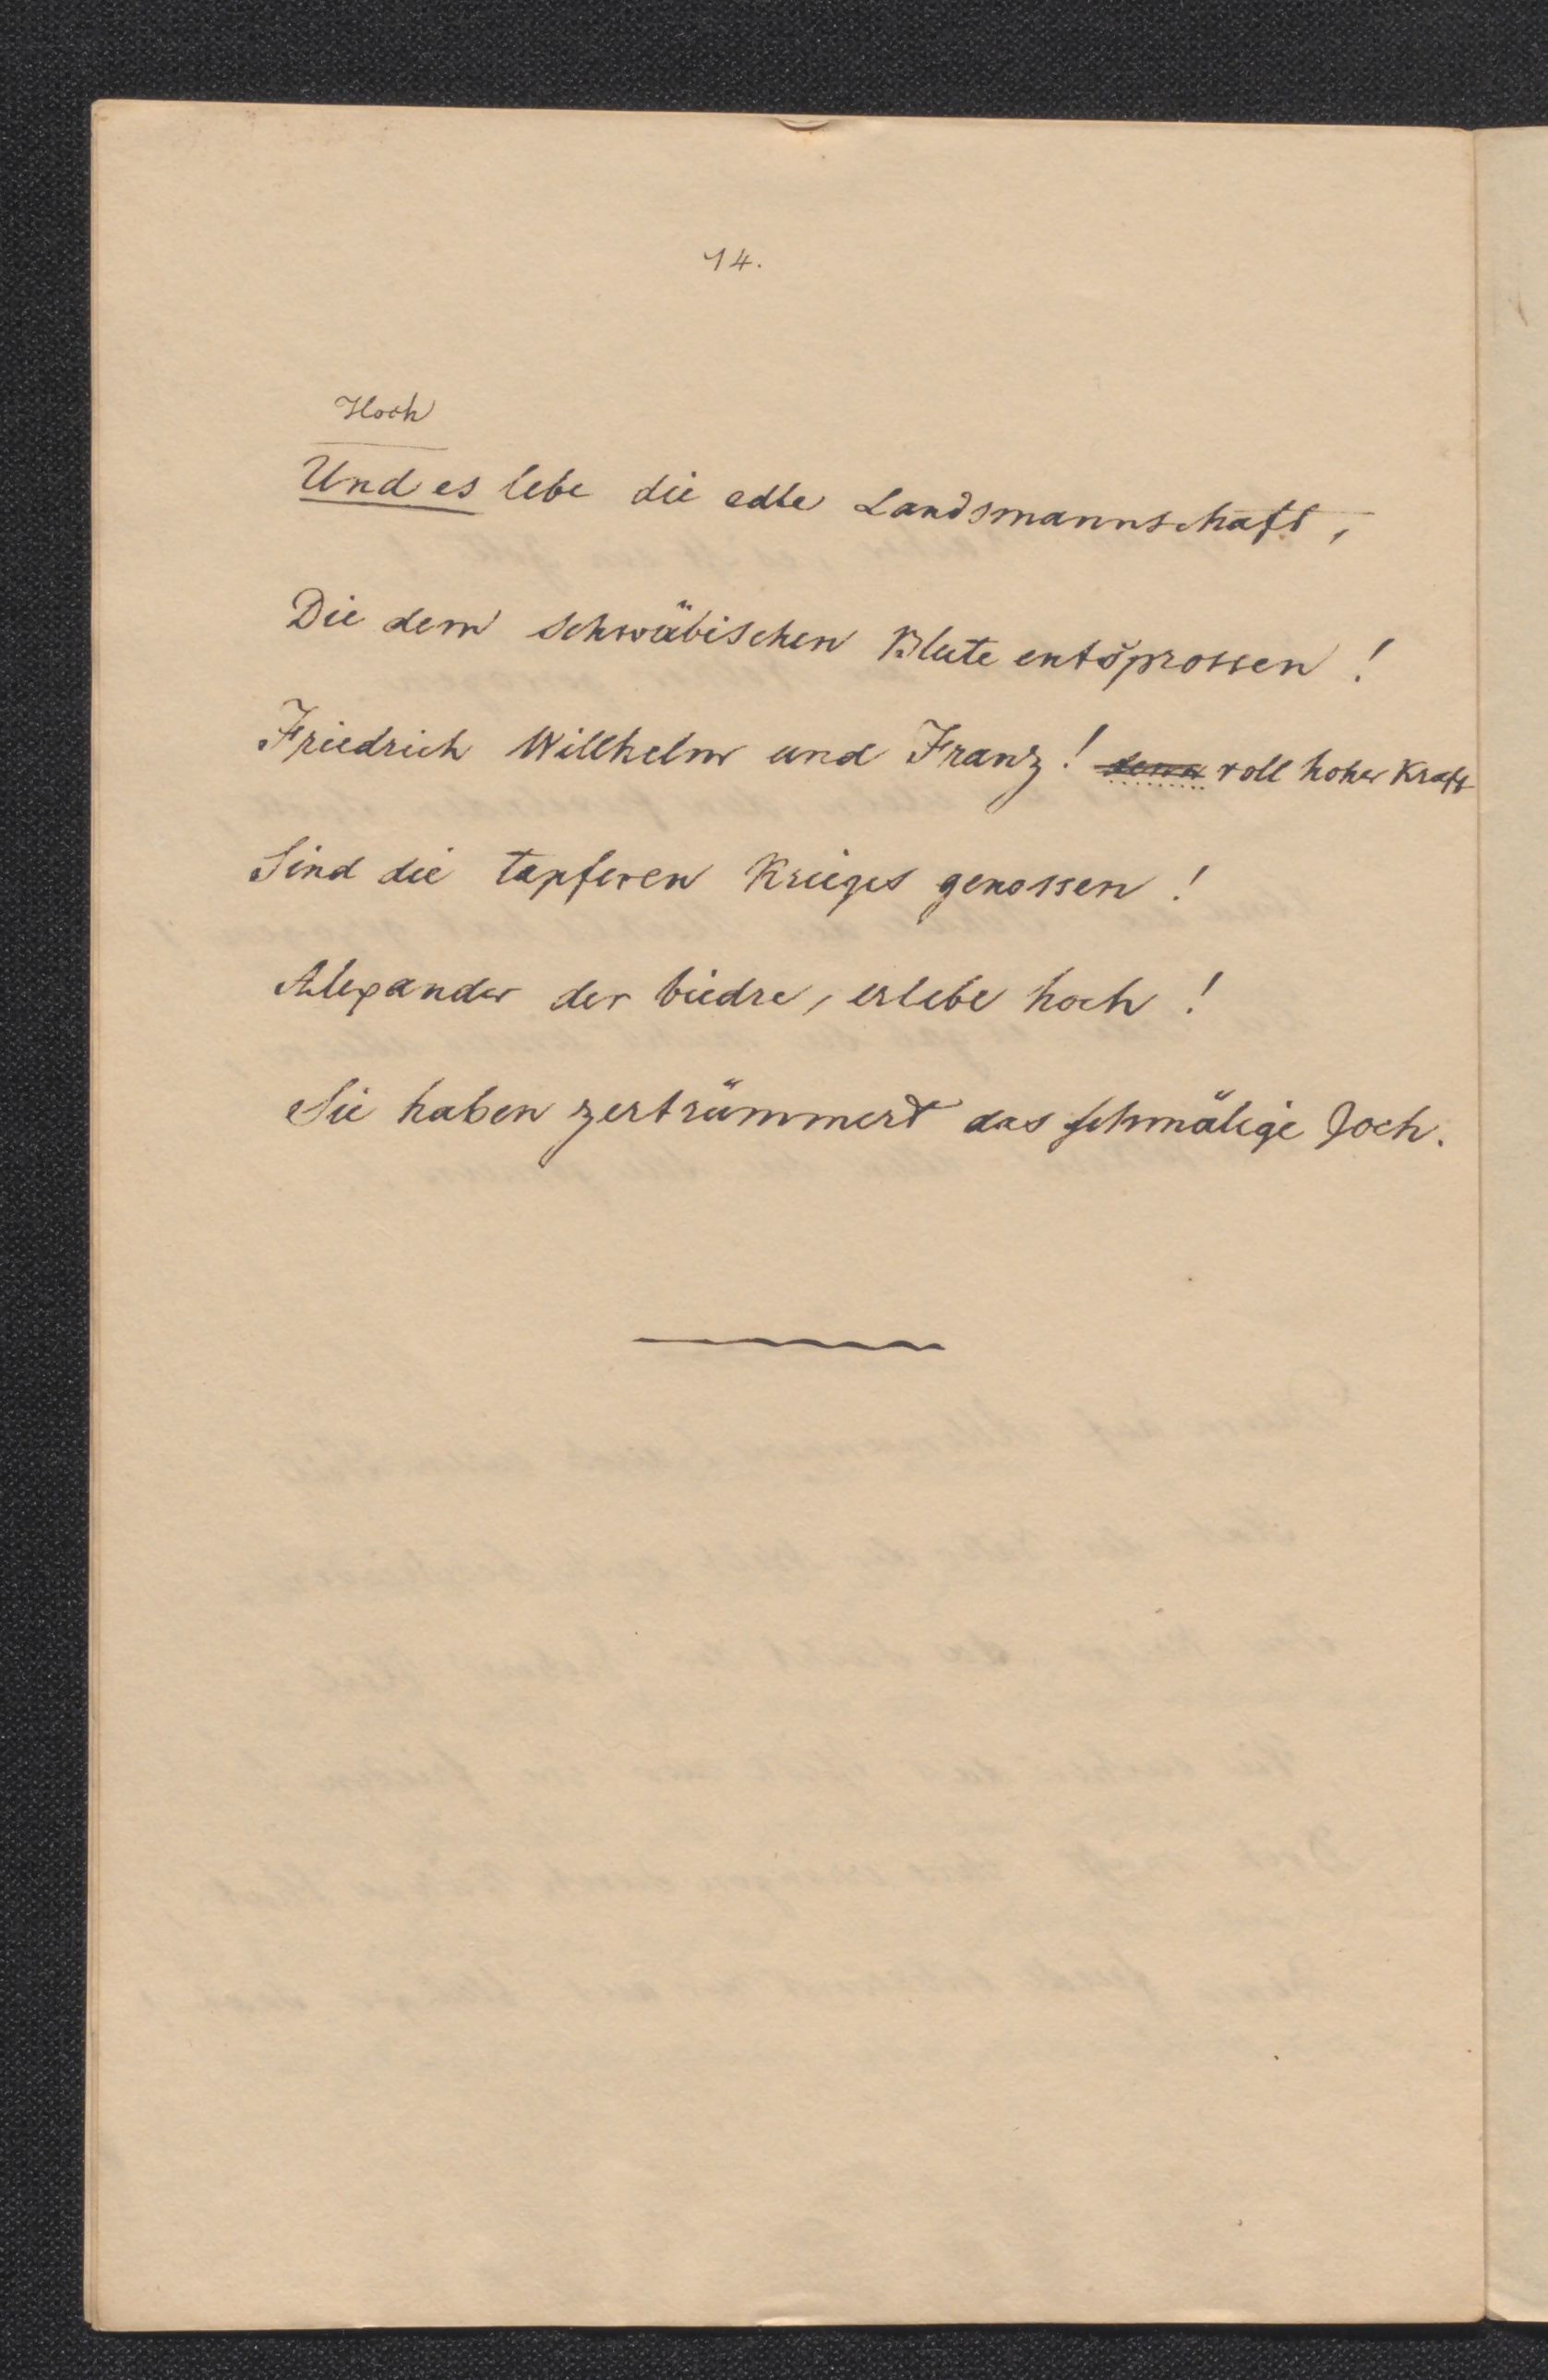 14.
Hoch
Und es lebe die edle Landsmannschaft,
Die dem schwäbischen Blute entsprossen!
Friedrich Willhelm und Franz! denn voll hoher Kraft
Sind die tapferen Krieges genossen!
Alexander der biedre, er lebe hoch!
Sie haben zertrümmert das schmälige Joch.